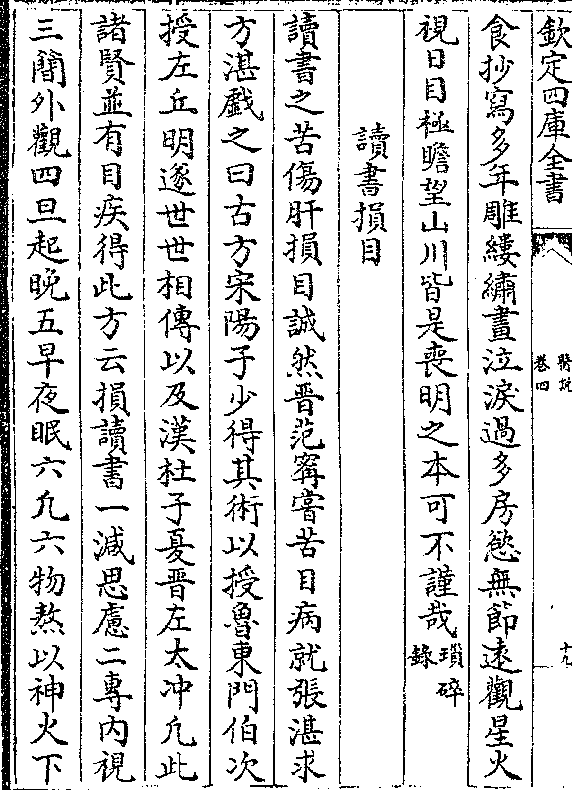 欽定四庫全書
醫說
卷四
十九
食抄寫多年雕縷繡畫泣淚過多房慾無節遠觀星火
視日目極瞻望山川皆是喪明之本可不謹哉瑣碎
錄
讀書損目
讀書之苦傷肝損目誠然晉范寗嘗苦目病就張湛求
方湛戲之曰古方宋陽子少得其術以授魯東門伯次
授左丘明遂世世相傳以及漢杜子夏晉左太冲凡此
諸賢並有目疾得此方云損讀書一減思慮二專內視
三簡外觀四旦起晚五早夜眠六凡六物熬以神火下